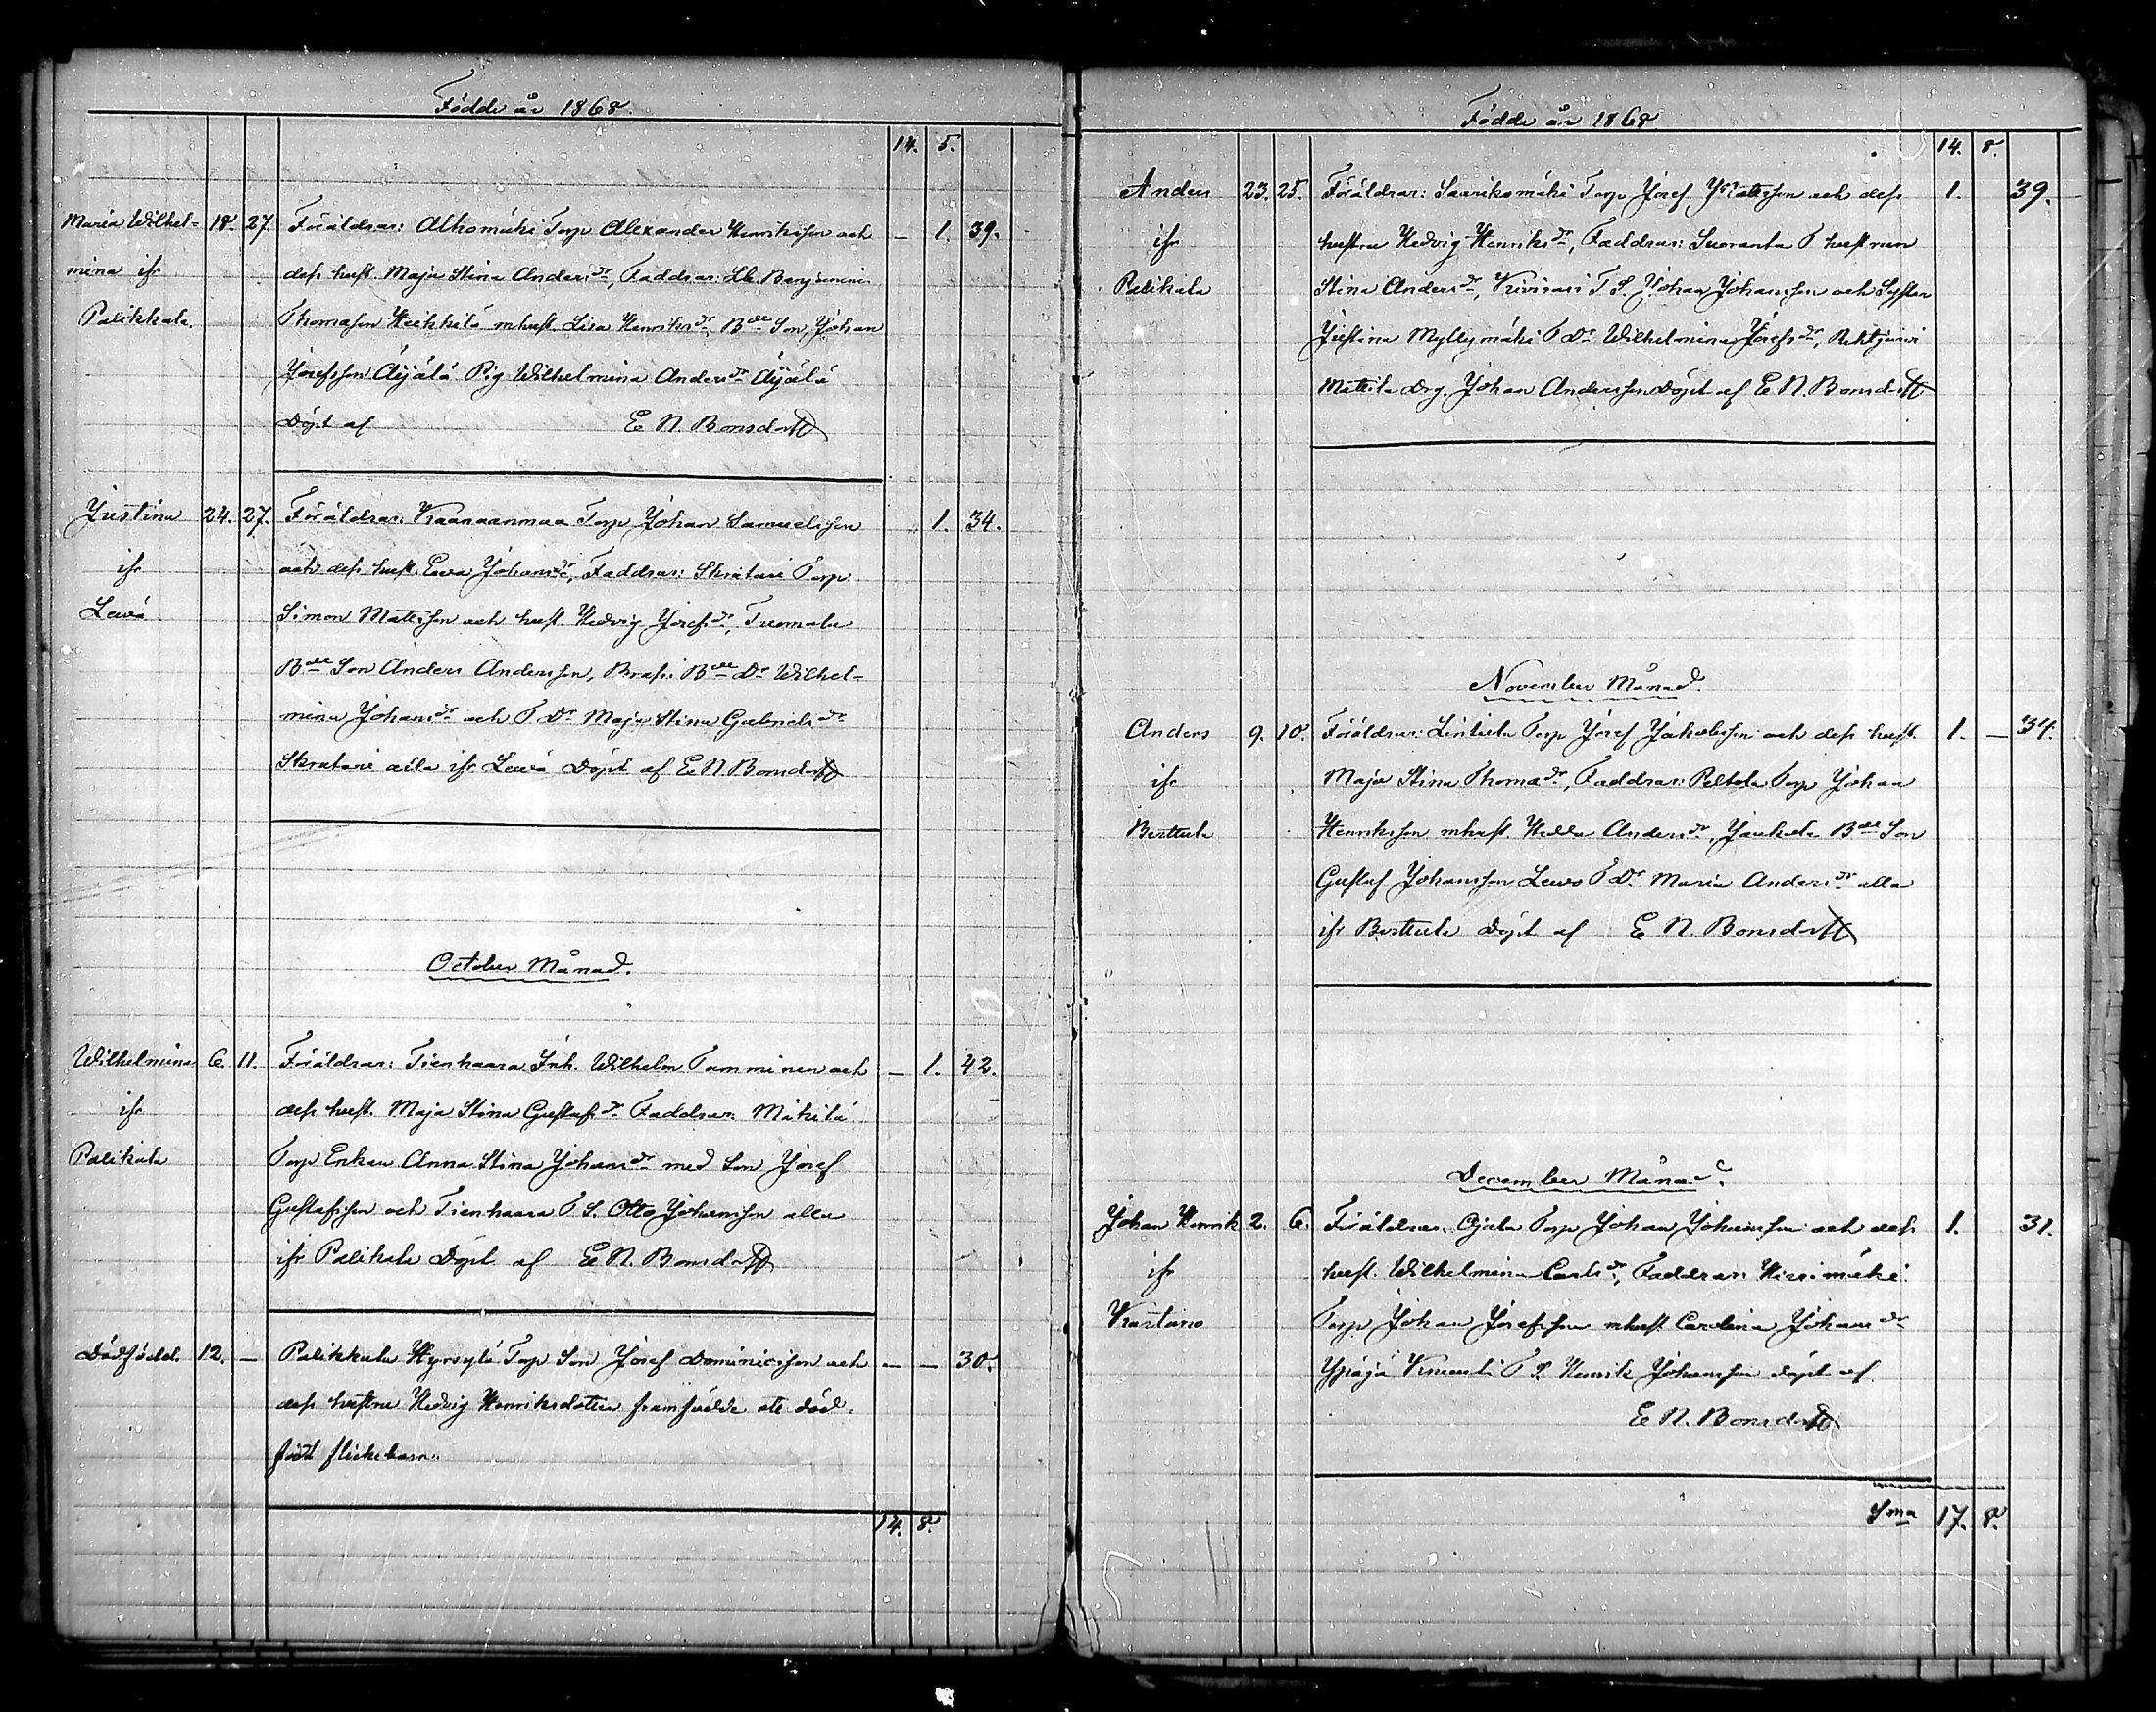 Födde år 1868.
14. 5.
Maria Wilhel- 18. 27. Föräldrar: Alhomäki Torp Alexander Henriksson och — 1. 39.
mina ifr dess hust. Maja Stina Andersdr, Faddrar: Lb. Benjamin
Palikkala. Thomasson Heikkilä mhust Lisa Henriksdr Bde Son Johan
Josefsson Äijälä Pig Wilhelmina Andersdr Äijälä
Döpt af E N. Bonsdorff
Justina 24. 27. Föräldrar: Kaanaanmaa Torp Johan Samuelsson 1. 34.
ifr och dess hust. Eva Johansdr, Faddrar: Skratari Torp
Levä Simon Mattsson och hust Hedvig Josefsdr, Tuomala
Bde Son Anders Andersson, Brasi Bde Dr Wilhel-
mina Johansdr och T Dr Maja Stina Gabrielsdr
Skratari alla ifr Levä Döpt af E N. Bonsdorff
October Månad.
Wilhelmina 6. 11. Föräldrar: Tienhaara Inh. Wilhelm Tamminen och — 1. 42.
ifr dess hust. Maja Stina Gustafsdr Faddrar: Mäkilä
Palikala Torp Enkan Anna Stina Johansdr med Son Josef
Gustafsson och Tienhaara T S. Otto Johansson alla
ifr Palikala Döpt af E N. Bonsdorff
Dödfödd. 12. — Palikkala Hyrsylä Torp Son Josef Dominicisson och — — 30.
dess hustru Hedvig Henriksdotter framfödde ett död-
födt flickebarn.
14. 8.
Födde år 1868
14. 8.
Anders 23. 25. Föräldrar: Saarikomäki Torp Josef Mattsson och dess 1. 39.
ifr hustru Hedvig Henriksdr, Faddrar: Suoranta T hustrun
Palikala Stina Andersdr, T S. Johan Johansson och Syster
Justina Myllymäki T Dr Wilhelmina Josefsdr,
Mattila Drg. Johan Andersson Döpt af E N. Bonsdorff
November Månad.
Anders 9. 10. Föräldrar: Lintula Torp Josef Jakobsson och dess hust. 1. — 34.
ifr Maja Stina Thomadr, Faddrar: Peltola Torp Johan
Berttula Henriksson mhust. Hedda Andersdr, Jaukola Bde Son
Gustaf Johansson Levo T Dr Maria Andersdr alla
ifr Berttula Döpt af E N. Bonsdorff
December Månad.
Johan Henrik 2. 6. Föräldrar: Ojala Torp Johan Johansson och dess 1. 31.
ifr hust. Wilhelmina Carlsdr, Faddrar: Hirsimäki
Kartano Torp Johan Josefsson mhust Carolina Johansdr
Ypäjä T S Henrik Johansson döpt af
E N. Bonsdorff
Sma 17. 8.